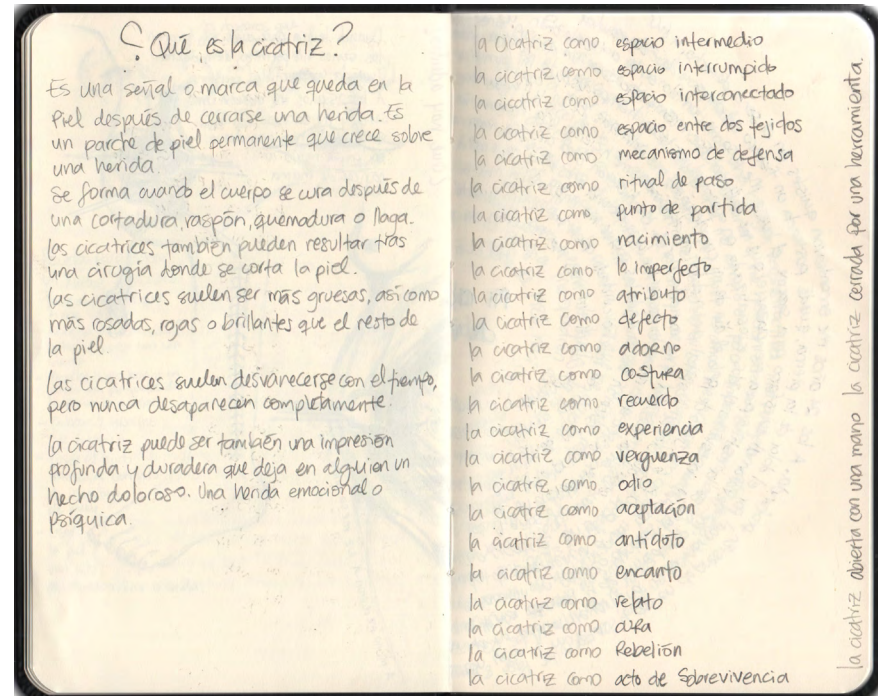 ¿Qué es la cicatriz?
Es una señal o marca que queda en la
piel después de cerrarse una herida. Es
un parche de piel permanente que crece sobre
una herida.
Se forma cuando el cuerpo se cura después de
una cortadura, raspón, quemadura o llaga.
Las cicatrices también pueden resultar tras
una cirugía donde se corta la piel.
Las cicatrices suelen ser más gruesas, así como
más rosadas, rojas o brillantes que el resto de
la piel.
Las cicatrices suelen desvanecerse con el tiempo,
pero nunca desaparecen completamente.
La cicatriz puede ser también una impresión
profunda y duradera que deja en alguien un
hecho doloroso. Una herida emocional o
psíquica.
la cicatriz como espacio intermedio
la cicatriz como espacio interrumpido
la cicatriz como espacio interconectado
la cicatriz como espacio entre dos tejidos
la cicatriz como mecanismo de defensa
la cicatriz como ritual de paso
la cicatriz como punto de partida
la cicatriz como nacimiento
la cicatriz como lo imperfecto
la cicatriz como atributo
la cicatriz como defecto
la cicatriz como adorno
la cicatriz como costura
la cicatriz como recuerdo
la cicatriz como experiencia
la cicatriz como verguenza
la cicatriz como odio
la cicatriz como aceptación
la cicatriz como antídoto
la cicatriz como encanto
la cicatriz como relato
la cicatriz como cura
la cicatriz como Rebelión
la cicatriz como acto de Sobrevivencia
la cicatriz abierta con una mano la cicatriz cerrada por una herramienta.